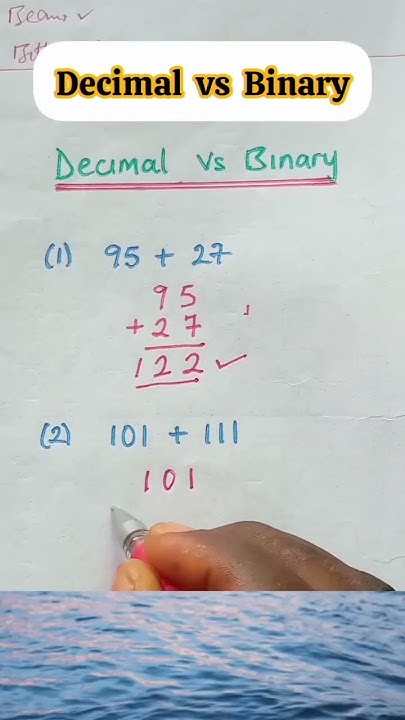 Beam ✓
Decimal vs Binary
Decimal vs Binary
(1) 95 + 27
95
+ 27
122 ✓
(2) 101 + 111
101